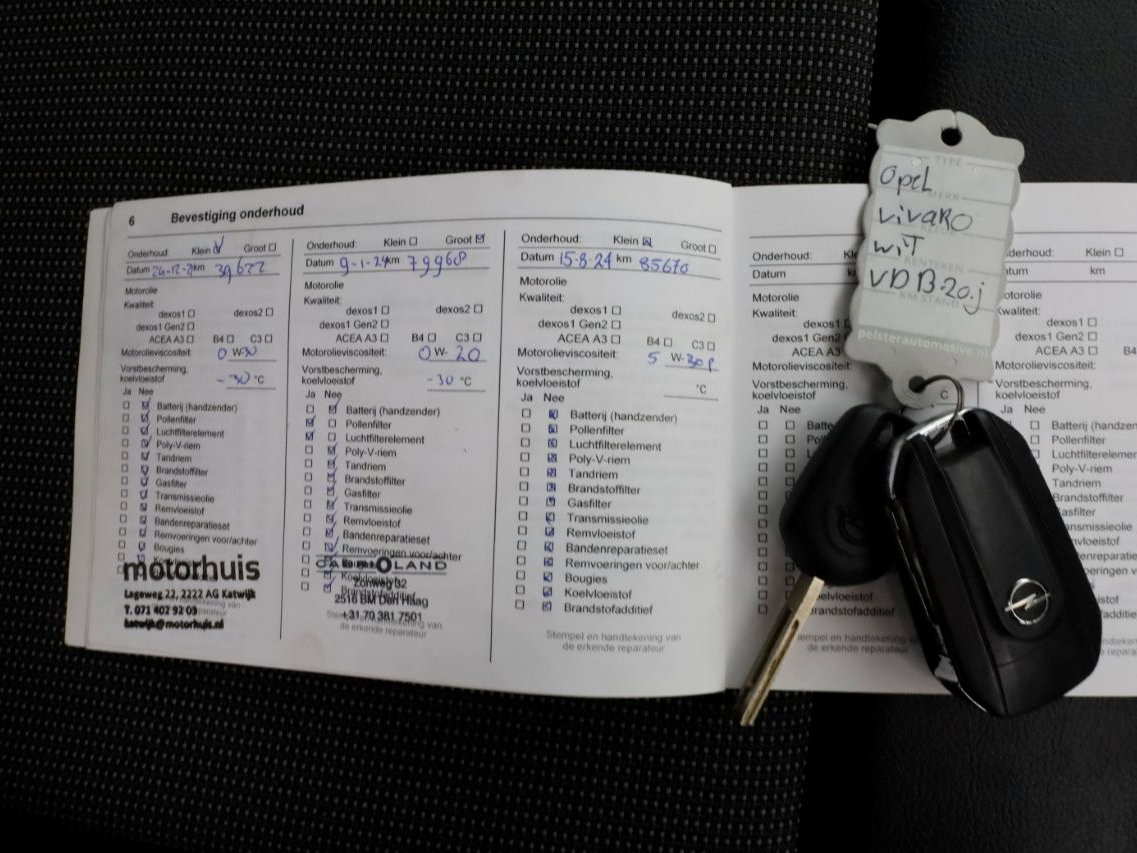 6 Bevestiging onderhoud
Onderhoud: Klein Groot
Datum km 39622
Motorolie
Kwaliteit:
dexos1 dexos2
dexos1 Gen2
ACEA A3 B4 C3
Motorolieviscositeit: 0 W-30
Vorstbescherming,
koelvloeistof -30 °C
Ja Nee
Batterij (handzender)
Pollenfilter
Luchtfilterelement
Poly-V-riem
Tandriem
Brandstoffilter
Gasfilter
Transmissieolie
Remvloeistof
Bandenreparatieset
Remvoeringen voor/achter
Bougies
motorhuis
Lageweg 22, 2222 AG Katwijk
T. 071 402 92 03
katwijk@motorhuis.nl
Onderhoud: Klein Groot
Datum 9-1-24 km 79960
Motorolie
Kwaliteit:
dexos1 dexos2
dexos1 Gen2
ACEA A3 B4 C3
Motorolieviscositeit: 0 W- 20
Vorstbescherming,
koelvloeistof -30 °C
Ja Nee
Batterij (handzender)
Pollenfilter
Luchtfilterelement
Poly-V-riem
Tandriem
Brandstoffilter
Gasfilter
Transmissieolie
Remvloeistof
Bandenreparatieset
Remvoeringen voor/achter
Bougies
Koelvloeistof
Brandstofadditief
Zonweg 32
2516 BM Den Haag
+31 70 381 7501
de erkende reparateur
Onderhoud: Klein Groot
Datum 15-8-24 km 85670
Motorolie
Kwaliteit:
dexos1 dexos2
dexos1 Gen2
ACEA A3 B4 C3
Motorolieviscositeit: 5 W-30
Vorstbescherming,
koelvloeistof °C
Ja Nee
Batterij (handzender)
Pollenfilter
Luchtfilterelement
Poly-V-riem
Tandriem
Brandstoffilter
Gasfilter
Transmissieolie
Remvloeistof
Bandenreparatieset
Remvoeringen voor/achter
Bougies
Koelvloeistof
Brandstofadditief
Stempel en handtekening van
de erkende reparateur
Onderhoud:
Datum
Motorolie
Kwaliteit:
dexos1
dexos1 Gen2
ACEA A3
Motorolieviscositeit:
Vorstbescherming,
koelvloeistof
Ja Nee
de erkende reparateur
TYPE
Opel
MERK
Vivaro
wit
KENTEKEN
VDB.20.j
KM.STAND
pelsterautomotive.nl
Klein
km
dexos1
dexos1 Gen2
ACEA A3 B4
Motorolieviscositeit:
Vorstbescherming,
koelvloeistof
Ja Nee
Pollenfilter
Luchtfilterelement
Poly-V-riem
Tandriem
Brandstoffilter